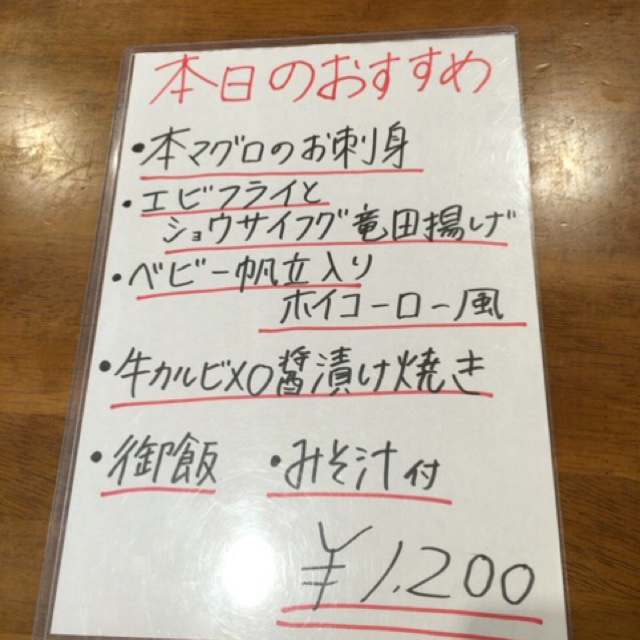 本日のおすすめ
・本マグロのお刺身
・エビフライと
ショウサイフグ竜田揚げ
・ベビー帆立入り
ホイコーロー風
・牛カルビXO醤漬け焼き
・御飯 ・みそ汁付
¥1,200